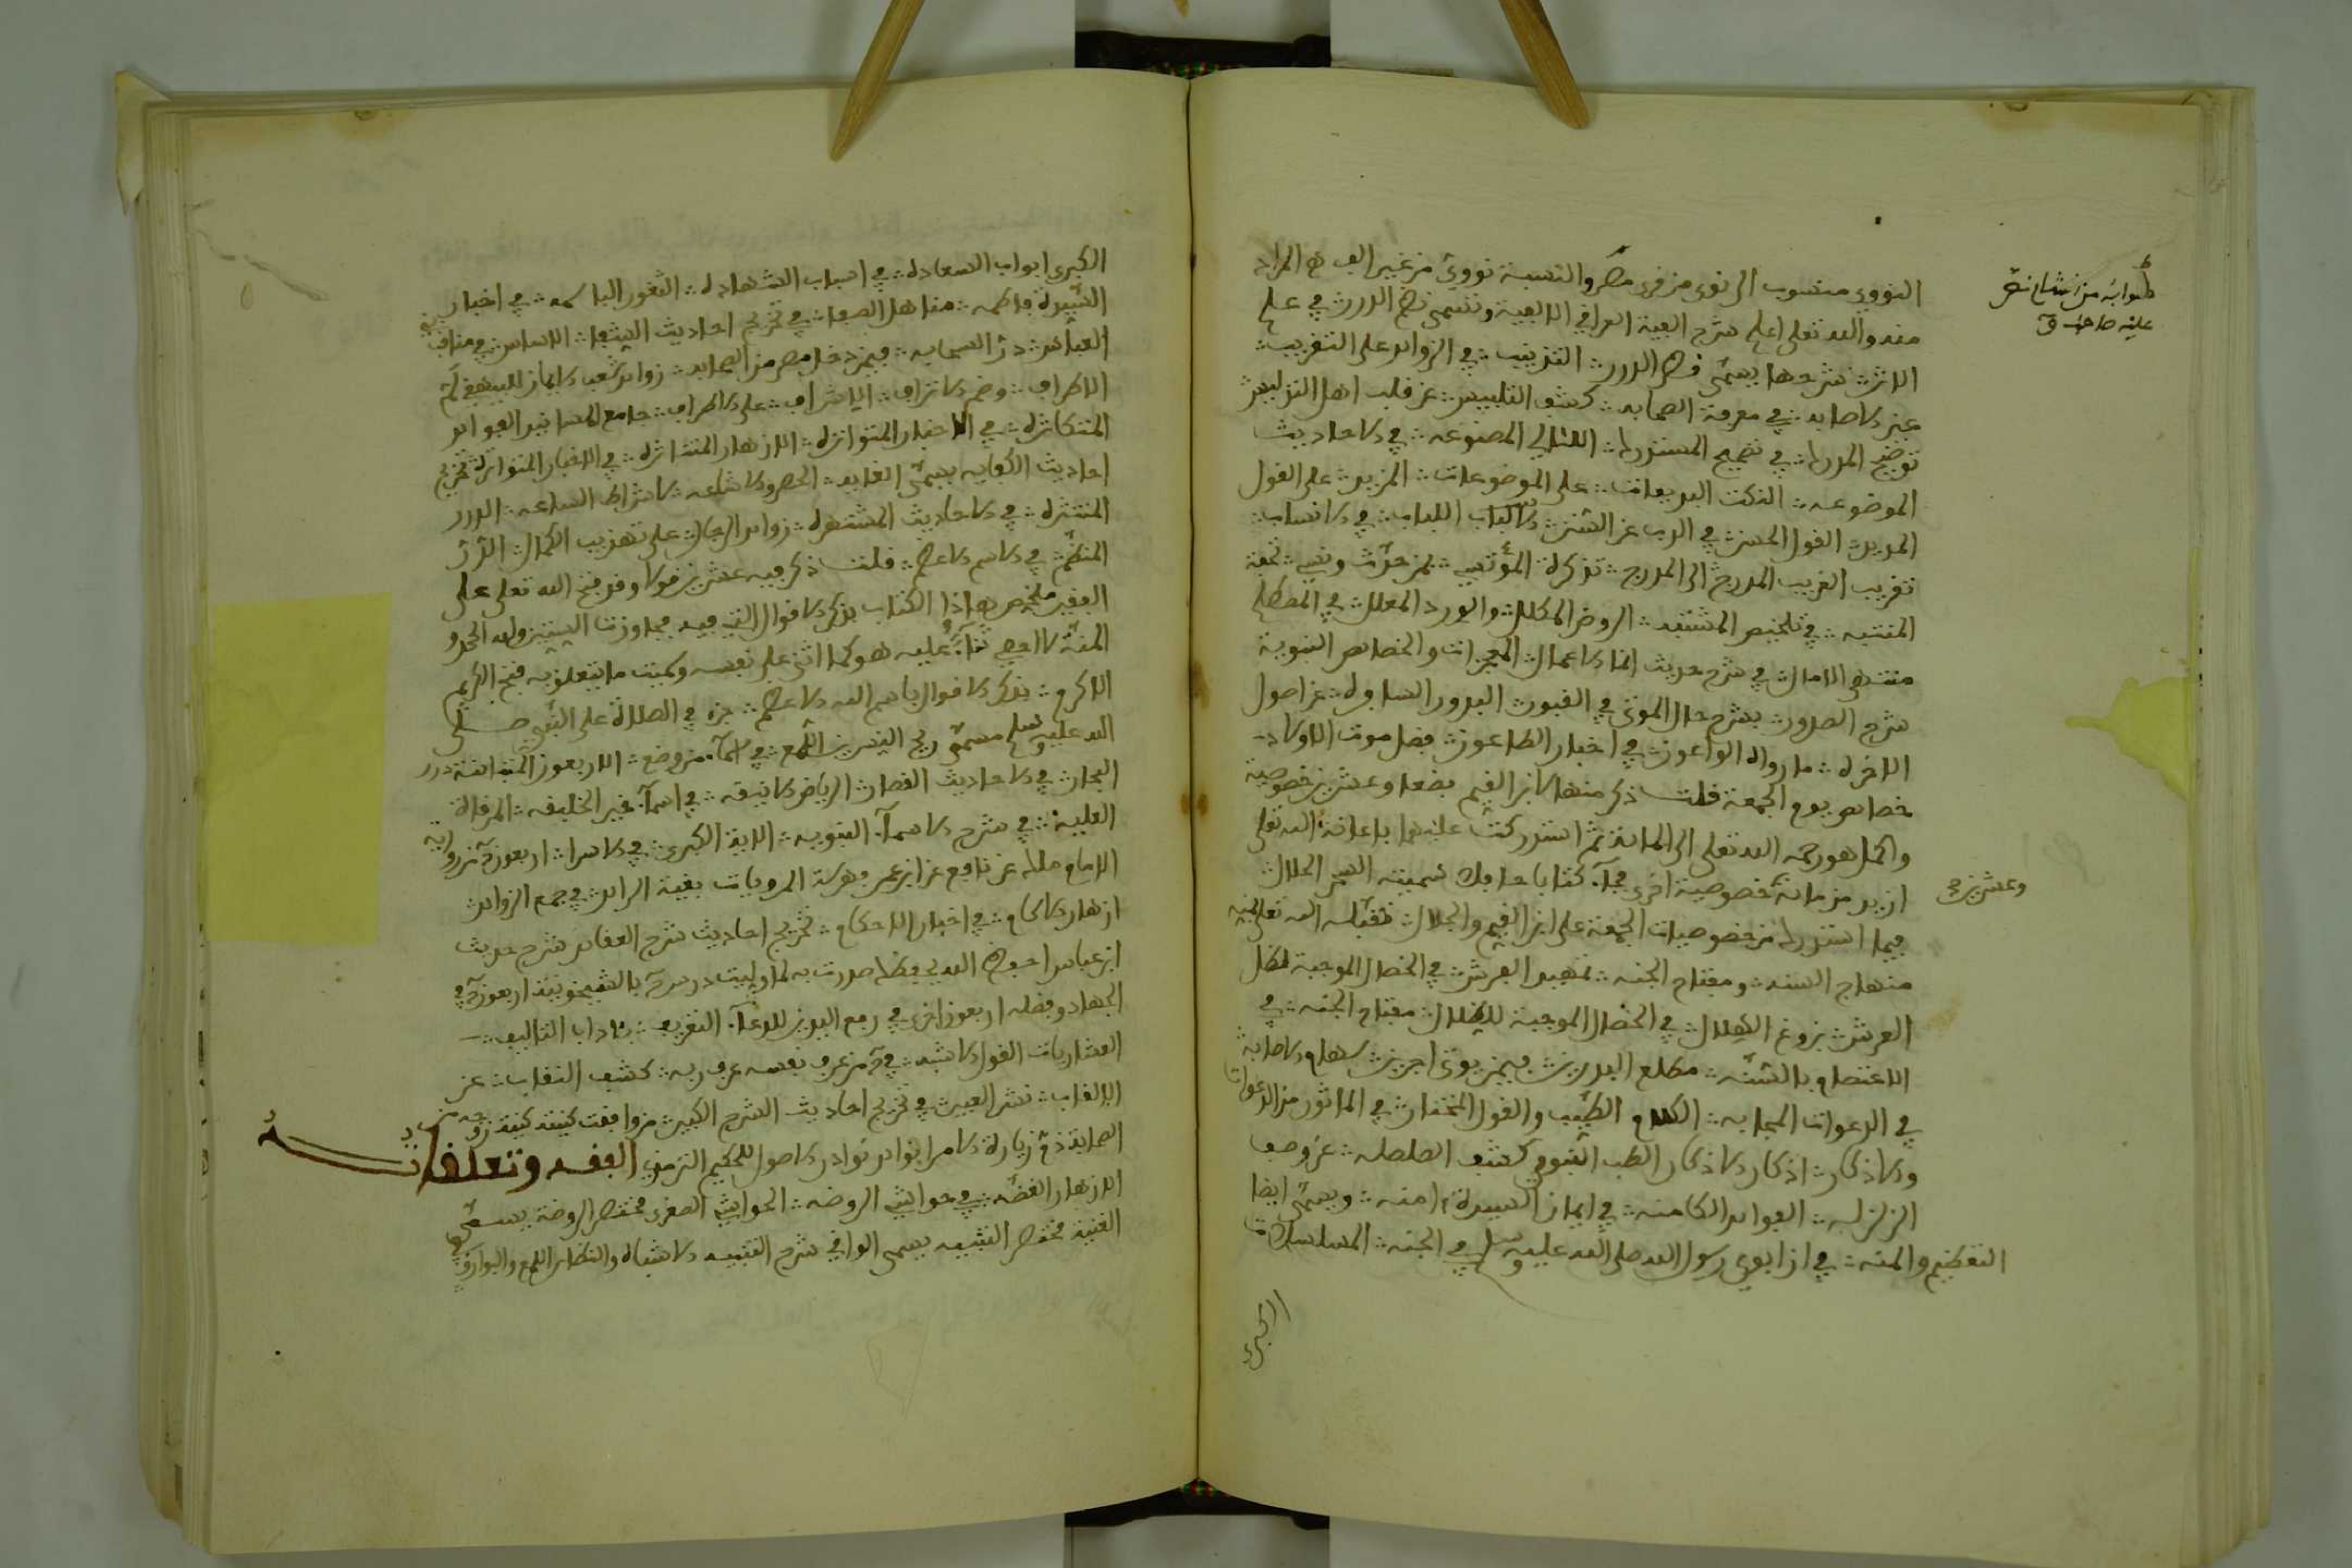 النووي منسوب الى نوى من قرى مصر والنسبة نووي من غير الف هو المراد
منه والله تعلى اعلم شرح الفية العراقي الالفية وتسمى نظم الدرر في علم
الاثر شرحها يسمى قطر الدرر التذنيب في الزوائد على التقريب
عين الاصابه في معرفة الصحابه كشف التلبيس عن قلب اهل التدليس
توضيح المدرك في تصحيح المستدرك اللئالي المصنوعه في الاحاديث
الموضوعه النكت البديعات على الموضوعات المزيد على القول
القول الحسن في الذب عن السنن لب اللباب في الانساب
تقريب الغريب المدرج الى المدرج تذكرة المؤتسي بمن حدث ونسي تحفة
في تلخيص المتشبه الروض المكلل والورد المعلل في المصطلح
منتهى الامال في شرح حديث انما الاعمال المعجزات والخصائص النبوية
شرح الصدور بشرح حال الموتى في القبور البدور السافرة عن امور
الاخرة ما رواه الواعون في اخبار الطاعون فضل موت الاولاد
خصائص يوم الجمعة قلت ذكر منها ابن القيم بضعا وعشرين خصوصية
واكمل هو رحمه الله تعلى الى المائة ثم استدركت عليهما باعانة الله تعلى
ازيد من مائة خصوصية اخرى فجآء كتابا حافلا سميته السحر الحلال
فيما استدرك من خصوصيات الجمعة على ابن القيم والجلال تقبله الله تعلى
منهاج السنه ومفتاح الجنه تمهيد الفرش في الخصال الموجبة لظل
العرش بزوغ الهلال في الخصال الموجبة للظلال مفتاح الجنه في
الاعتصام بالسنه مطلع البدرين فيمن يوتى اجرين سهام الاصابة
في الدعوات المجابه الكلام الطيب والقول المختار في الماثور من الدعوات
والاذكار اذكار الاذكار الطب النبوي كشف الصلصله عن وصف
الزلزله الفوائد الكامنه في ايمان السيدة امنه ويسمى ايضا
التعظيم والمنه في ان ابوي رسول الله صلى الله عليه وسلم في الجنه المسلسلات
وعشرين
الكبرى
الكبرى ابواب السعادة في اسباب الشهادة الثغور الباسمه في اخبار
السيدة فاطمه مناهل الصفا في تخريج احاديث الشفا الاساس في مناقب بني
العباس در السحابه فيمن دخل مصر من الصحابه زوائد شعب الايمان للبيهقي
الاطراف وضم الاتراف الاشراف على الاطراف جامع المسانيد الفوائد
المتكاثرة في الاخبار المتواترة الازهار المتناثرة في الاخبار المتواترة تخريج
احاديث الكفايه يسمى الحصر والاشاعه لاشراط الساعه الدرر
المنتثرة في الاحاديث المشتهرة زوائد الرجال على تهذيب الكمال الدر
المنظم في الاسم الاعظم قلت ذكر فيه عشرين قولا وقد فتح الله تعلى على
الفقير ملخص هاذا الكتاب بذكر الاقوال التي فيه فجاوزت الستين ولله الحمد و
المنة لا احصي ثنآء عليه هو كما اثنى على نفسه وسميت ما يتعلق به فتح الكريم
الاكرم بذكر الاقوال باسم الله الاعظم جزء في الصلاة على النبي صلى
الله عليه وسلم مسمى ريح النسرين اللمع في اسمآء من وضع الاربعون المتباينة درر
البحار في الاحاديث القصار الرياض الانيقه في اسمآء خير الخليقه المرقاة
العلية في شرح الاسمآء النبويه الاية الكبرى في الاسرا اربعون من رواية
الامام ملك عن نافع عن ابن عمر فهرسة المرويات بغية الرائد في جمع الزوائد
ازهار الاكام في اخبار الاحكام تخريج احاديث شرح العقائد شرح حديث
ابن عباس احفظ الله يحفظك صدرت به لما وليت درس بالشيخونية اربعون في
الجهاد وفضله اربعون اخرى في رفع اليدين للدعآء التعريف باداب التاليف
العشاريات القول الاشبه في من عرف نفسه عرف ربه كشف النقاب عن
الالقاب نشر العبير في تخريج احاديث الشرح الكبير من وافقت كنيته كنية زوجه من
الصحابة ذم زيارة الامرا زوائد نوادر الاصول للحكيم الترمذي الفقه وتعلقاته
الازهار الغضه في حواشي الروضه الحواشي الصغرى مختصر الروضة يسمى
القنية مختصر التنبيه يسمى الوافي شرح التنبيه الاشباه والنظائر اللمع والبوارق في